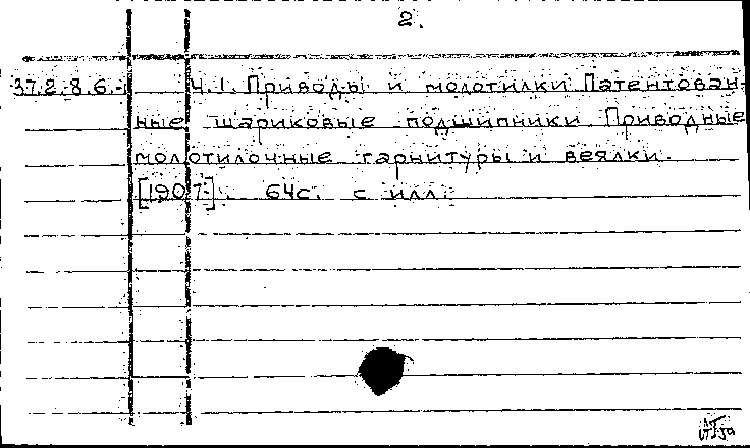 2.
37.2.8.6.- Ч.1. Приводы и молотилки Патентован-
ные шариковые подшипники Приводные
молотилочные гарнитуры и веялки.
[1907]. 64с. с илл.